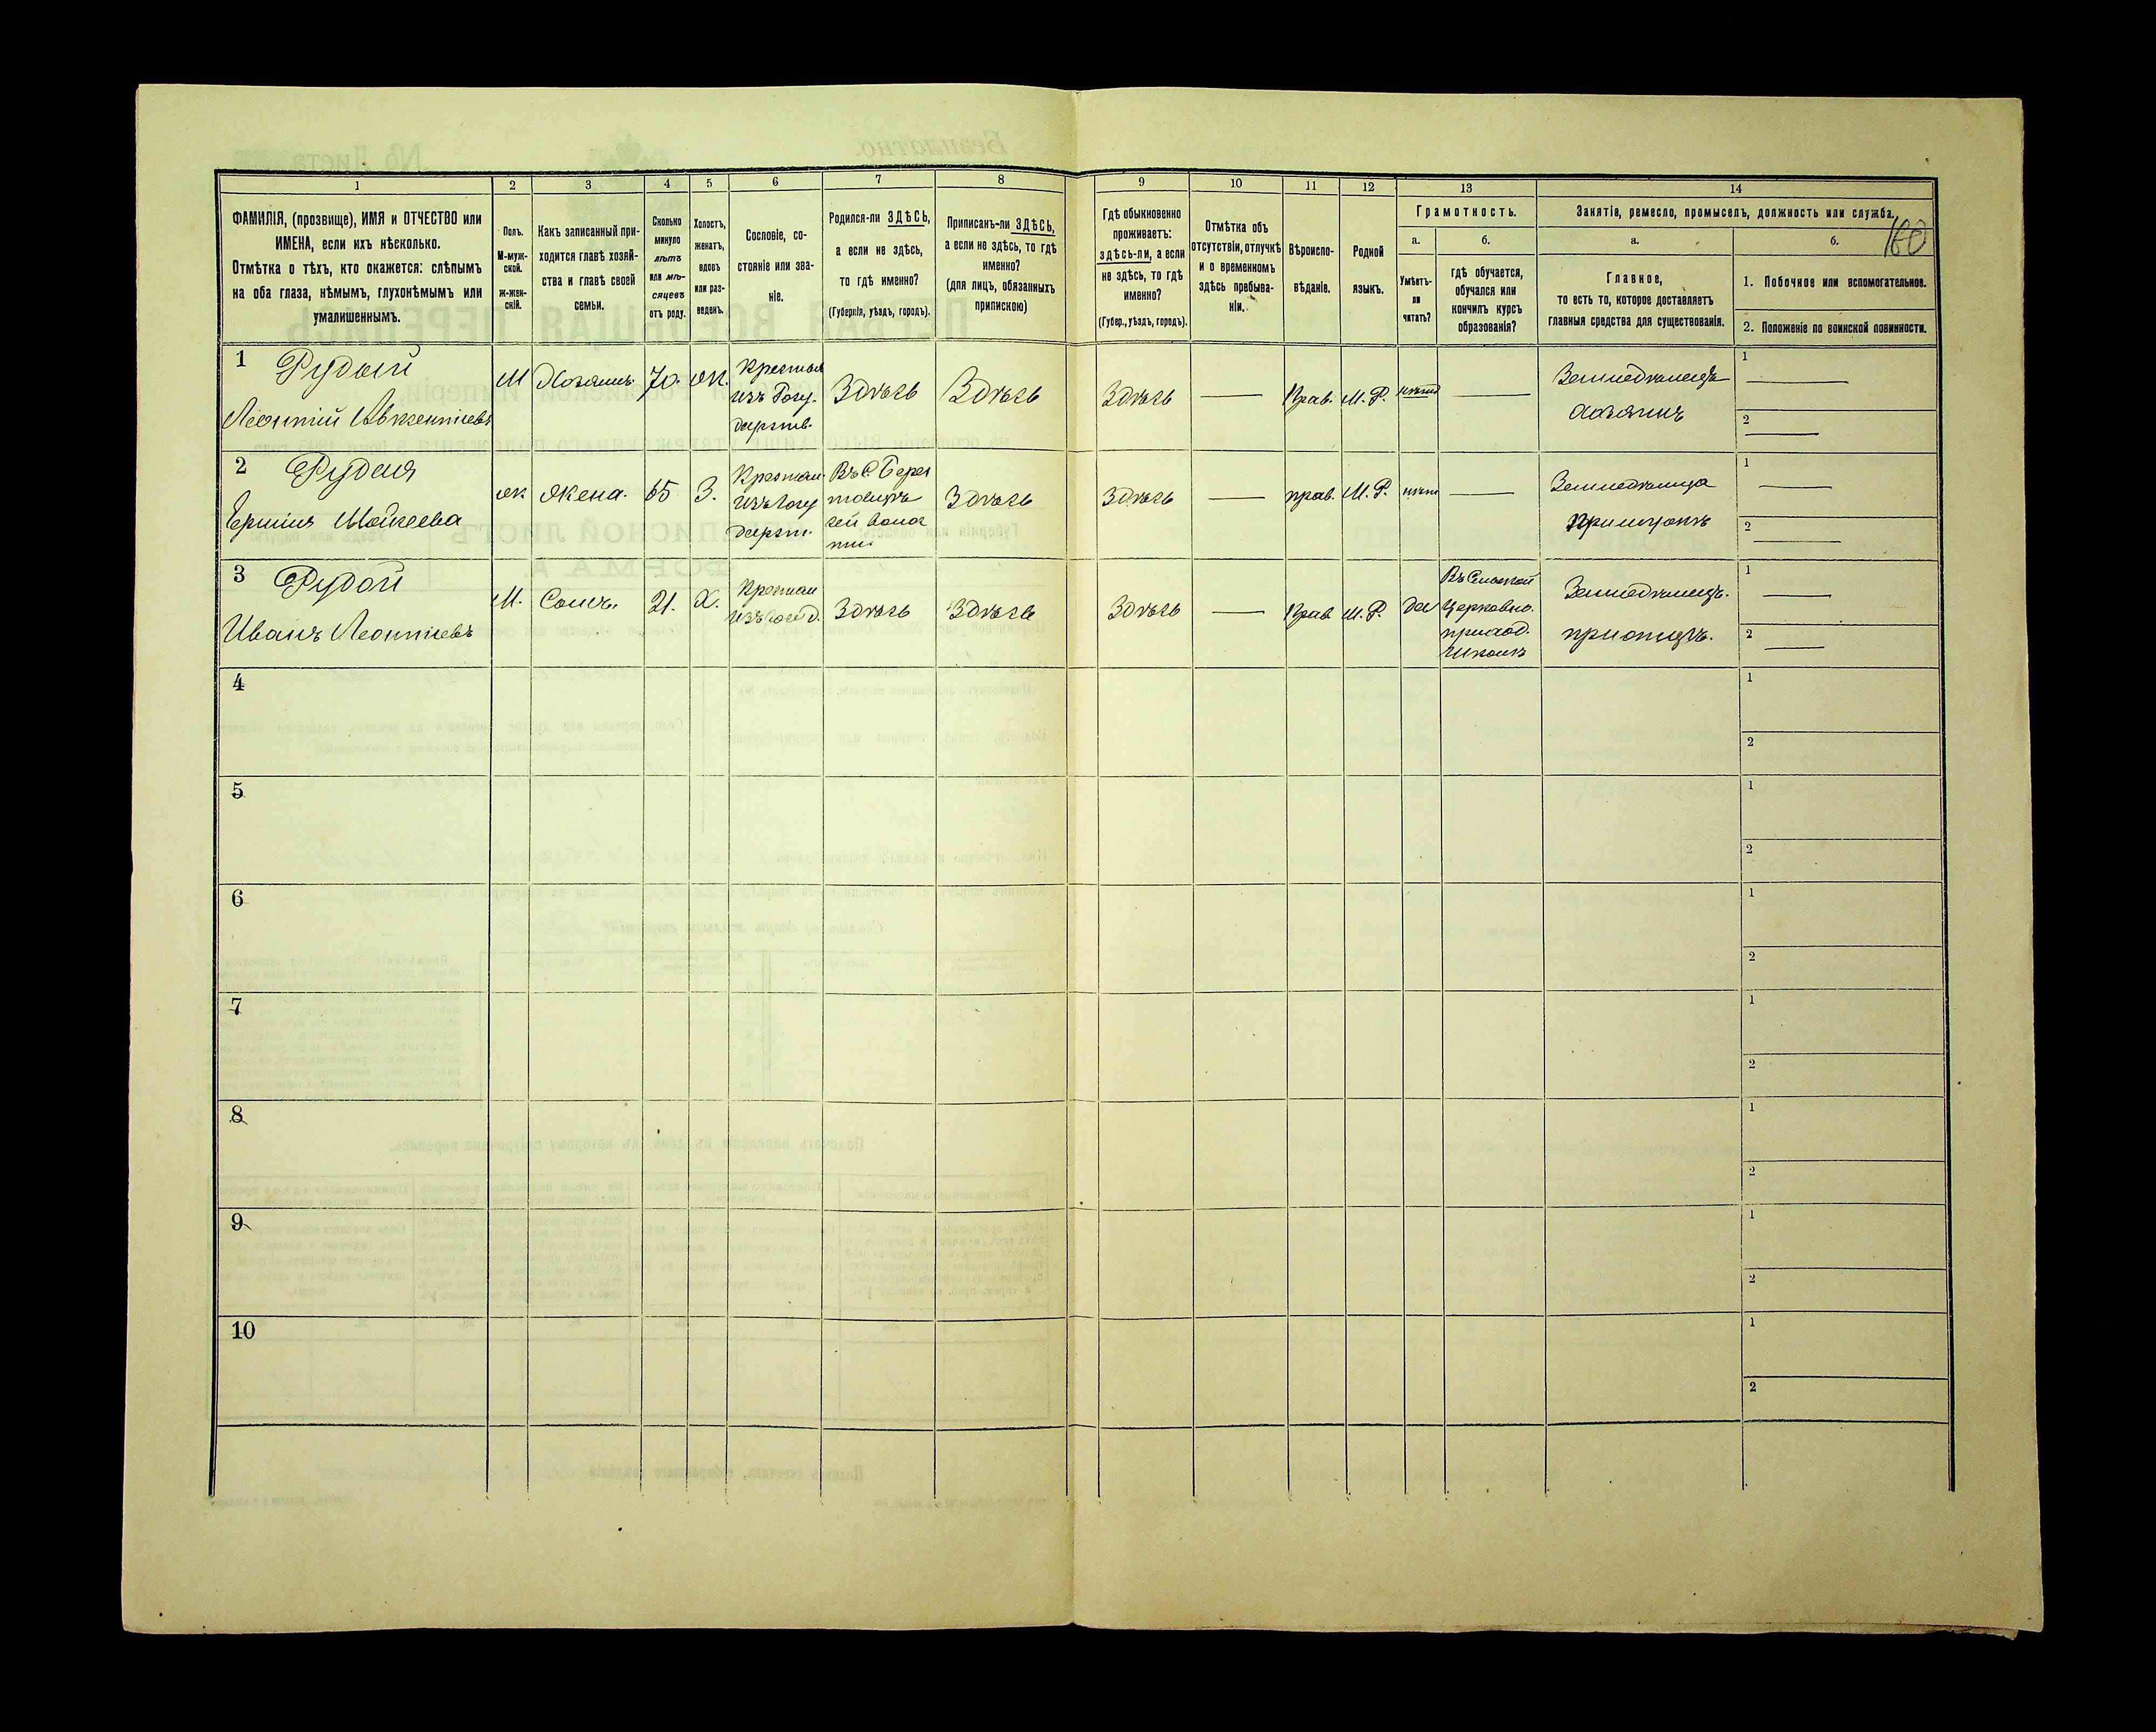 160
1 2 3 4 5 6 7 8 9 10 11 12 13 14
ФАМИЛІЯ, (прозвище), ИМЯ и ОТЧЕСТВО или
ИМЕНА, если ихъ нѣсколько.
Отмѣтка о тѣхъ, кто окажется: слѣпымъ
на оба глаза, нѣмымъ, глухонѣмымъ или
умалишеннымъ.
Полъ.
М-муж-
ской.
ж-жен-
скій.
Какъ записанный при-
ходится главѣ хозяй-
ства и главѣ своей
семьи.
Сколько
минуло
лѣтъ
или мѣ-
сяцевъ
отъ роду.
Холостъ,
женатъ,
вдовъ
или раз-
веденъ.
Сословіе, со-
стояніе или зва-
ніе.
Родился-ли ЗДѢСЬ,
а если не здѣсь,
то гдѣ именно?
(Губернія, уѣздъ, городъ).
Приписанъ-ли ЗДѢСЬ,
а если не здѣсь, то гдѣ
именно?
(для лицъ, обязанныхъ
припискою)
Гдѣ обыкновенно
проживаетъ:
здѣсь-ли, а если
не здѣсь, то гдѣ
именно?
(Губер., уѣздъ, городъ).
Отмѣтка объ
отсутствіи, отлучкѣ
и о временномъ
здѣсь пребыва-
ніи.
Вѣроиспо-
вѣданіе.
Родной
языкъ.
Грамотность.
а.
Умѣетъ-
ли
читать?
б.
гдѣ обучается,
обучался или
кончилъ курсъ
образованія?
Занятіе, ремесло, промыселъ, должность или служба.
а.
Главное,
то есть то, которое доставляетъ
главныя средства для существованія.
б.
1. Побочное или вспомогательное.
2. Положеніе по воинской повинности.
1 Рудый
Леонтій Авксентіевъ
М
Хозяинъ
70.
Ж.
Крестья
изъ Госу-
дарств.
Здѣсь
Здѣсь
Здѣсь
—
Прав.
М. Р.
нѣтъ
—
Земледѣлецъ
хозяинъ
1 —
2 —
2 Рудая
Моисеева
ж
Жена.
65
З.
Крестьян.
изъ Госу
дарст.
Въ С. Берес
товцѣ
сей волос
ти.
Здѣсь
Здѣсь
—
прав.
М. Р.
нѣт
—
Земледѣлица
1 —
2 —
3 Рудой
Иванъ Леонтіевъ
М.
Сынъ.
21.
Х.
Крестьян
изъ Госуд.
Здѣсь
Здѣсь
Здѣсь
—
Прав
М. Р.
да
Въ Сельской
Церковно.
приход.
Школѣ
Земледѣлецъ.
при отцѣ.
1 —
2 —
4
1
2
5
1
2
6
1
2
7
1
2
8
1
2
9
1
2
10
1
2